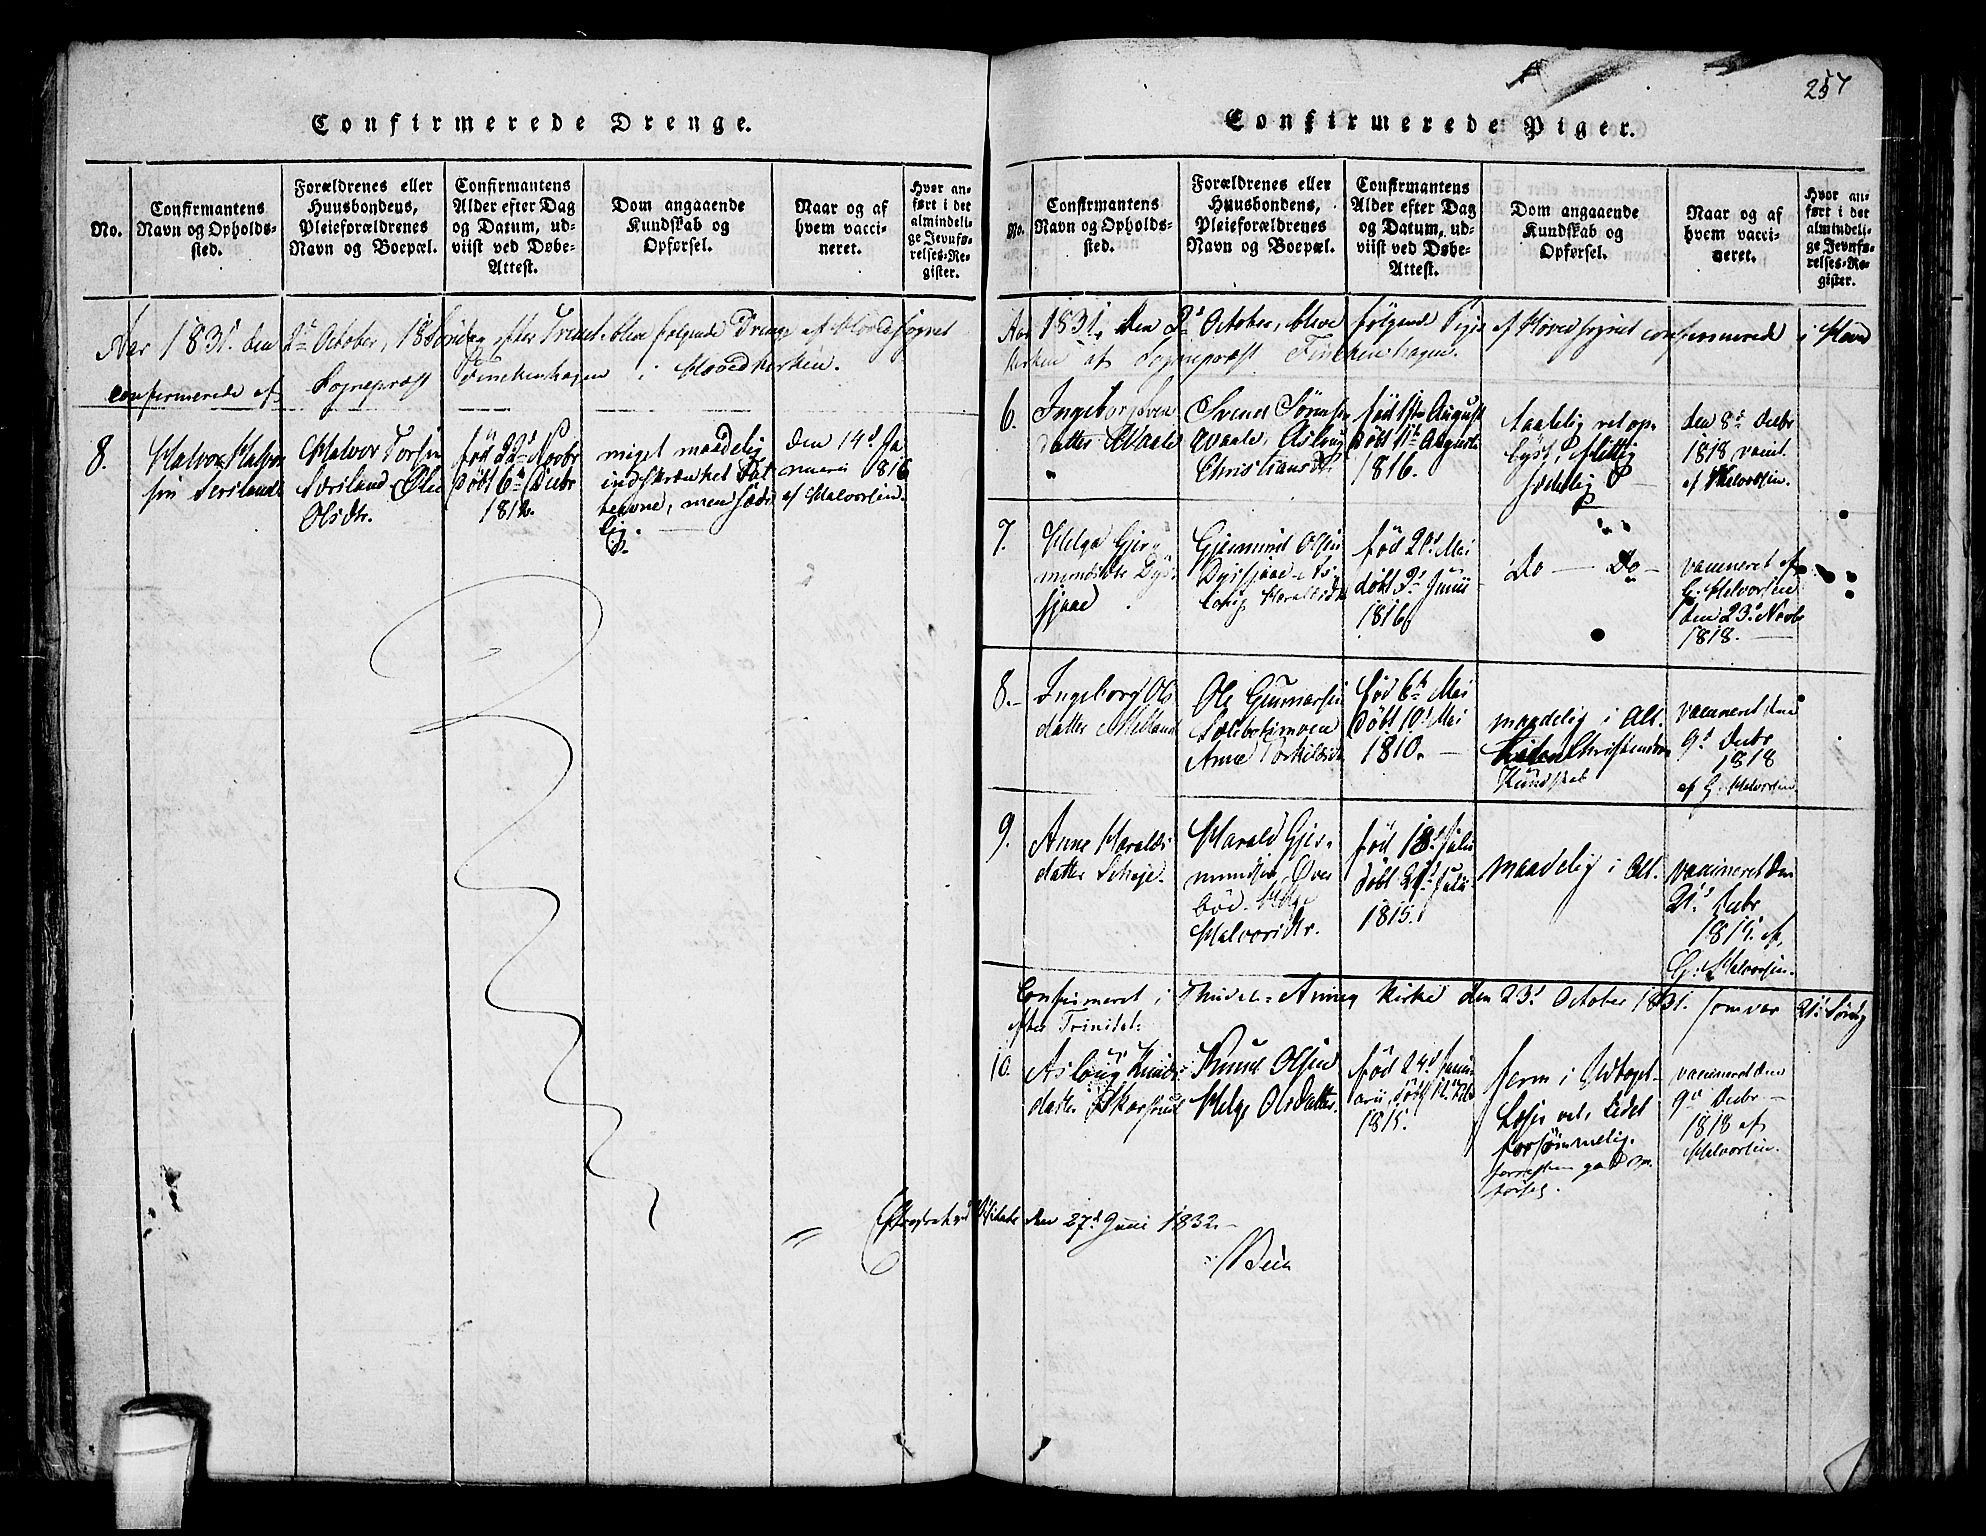 257
Confirmerede Drenge.
No.
Confirmantens
Navn og Opholds-
sted.
Forældrenes eller
Huusbondens,
Pleieforældrenes
Navn og Boepæl.
Confirmantens
Alder efter Dag
og Datum, ud-
viist ved Døbe-
Attest.
Dom angaaende
Kundskab og
Opførsel.
Naar og af
hvem vacci-
neret.
Hvor an-
ført i det
almindeli-
ge Jevnfø-
relses-Re-
gister.
Aar 1831. den 2d October, 18 Søndag efter Trinit. bleve følgende Drenge af Hovedsognet
confirmerede af Sognepræst Finckenhagen i Hovedkirken.
8.
Halvor Halvor
sen
Halvor Torsen
Ølie
Olsdtr.
fød 22d Novbr
døbt 6te Decbr
1812.
meget maadelig
indskrænket Fat
teevne, men sæde
lig.
den 14d Ja
nuari 1816
af Halvorsen.
Confirmerede Piger.
No.
Confirmantens
Navn og Opholds-
sted.
Forældrenes eller
Huusbondens,
Pleieforældrenes
Navn og Boepæl.
Confirmantens
Alder efter Dag
og Datum, ud-
viist ved Døbe-
Attest.
Dom angaaende
Kundskab og
Opførsel.
Naar og af
hvem vacci-
neret.
Hvor an-
ført i det
almindeli-
ge Jevnfø-
relses-Re-
gister.
Aar 1831, den 2d October, bleve følgende Piger af Hovedsognet confirmerede i Hoved
kirken af Sognepræst Finckenhagen.
6.
Ingebor Svens
datter Qvaale
Svend Sørensen
Qvaale, Aslaug
Christiansdr.
fød 1ste August
døbt 11te Augusti
1816.
vel op-
lyst, flittig
sædelig
den 8d Decbr
1818 vaccit.
af Halvorsen.
7.
Helga Gjer
mundsdtr Dys
sjaae
Gjermund Olsen
Dyssjaae As
laug Haraldsdr
fød 20d Mai
døbt 3d Junii
1816
Do — Do —
vaccineret af
G. Halvorsen
den 23d Novbr
1818. —
8. -
Ingeborg Ols
datter Melland
Ole Gunnarsen
Anne Torkildsdr
fød 6te Mai
døbt 10d Mai
1810. —
maadelig i Alt.
Christendoms
Kundskab
vaccineret den
9d Decbr
1818
af G. Halvorsen
9.
Anne Haralds
datter
Harald Gjer-
mundsen Over
bøe - Helge
Halvorsdtr.
fød 18d Julii
døbt Julii
1815.
maadelig i Alt.
vaccineret den
21d Decbr
1815. af
G. Halvorsen.
Confirmeret i Annex Kirke den 23d October 1831. som var 21d Søndg
efter Trinitat:
10.
Aslaug Knuds
datter
Knud Olsen
Helge Olsdatter.
fød 24d Janu
arii, døbt 12te
1815.
vel, Lidet
forsømmelig.
god
vaccineret den
9de Decbr —
1818 af
Halvorsen.
den 27d Juni 1832. -